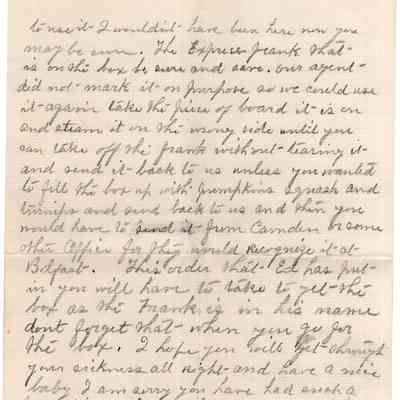 to use it I wouldnt have been here now you
may be sure. The Express frank that
is on the box be sure and save. our agent
did not mark it on purpose so we could use
it again take the piece of board it is on
and steam it on the wrong side until you
can take off the frank without tearing it
and send it back to us unless you wanted
to fill the box up with pumpkins squash and
turnips and send back to us and then you
would have to send it from Camden or some
other Office for they would recognize it at
Belfast. This order that Ed has put
in you will have to take to get the
box as the frank is in his name
dont forget that when you go for
the box. I hope you will get through
your sickness all right and have a nice
baby I am sorry you have had such a